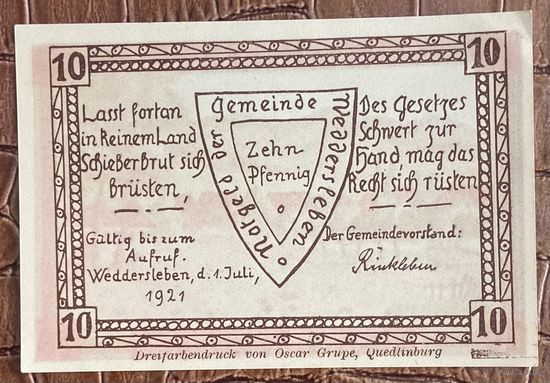 10
10
Lasst fortan
in Reinem Land
Schieberbrut sich
Brüsten,
Gültig bis zum
Aufruf.
Weddersleben, d. 1. Juli,
1921
Notgeld der Gemeinde Weddersleben
Zehn
Pfennig
Des Gesetzes
Schwert zur
Hand, mag das
Recht sich rüsten
Der Gemeindevorstand:
Rinkleben
10
10
Dreifarbendruck von Oscar Grupe, Quedlinburg